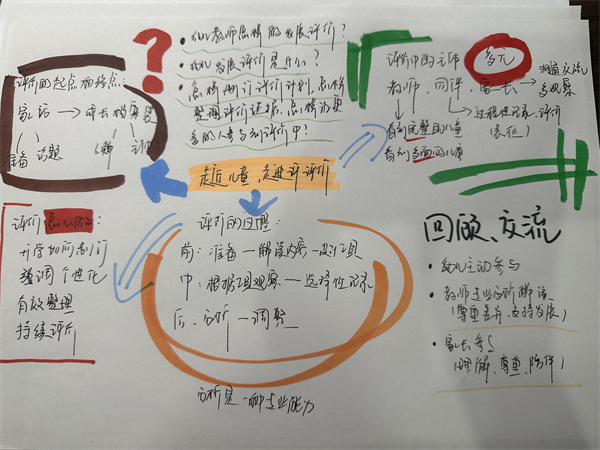 • 幼儿教师怎样的发展评价?
• 幼儿发展评价是什么?
• 怎样制订评价计划,怎样
整理评价证据,怎么样让更
多的人参与到评价中?
评价的起点和终点:
家访 → 成长档案袋
准备 话题
评价中的主体 多元
教师、同伴、家长 → 沟通交流
多观察
看到完整的儿童
看到多面的儿童
过程性记录、评价
(表征)
走近儿童 走进评评价
评价
开学如何制订
强调个性化
有效整理
持续评价
评价的过程:
前: 准备 — 解读内容 —
中: 根据 观察 — 选择性记录
后: 分析 — 调整
分析是一种专业能力
回顾、交流
• 幼儿主动参与
• 教师专业分析解读
(尊重差异、支持发展)
• 家长参与
(理解、尊重、陪伴)